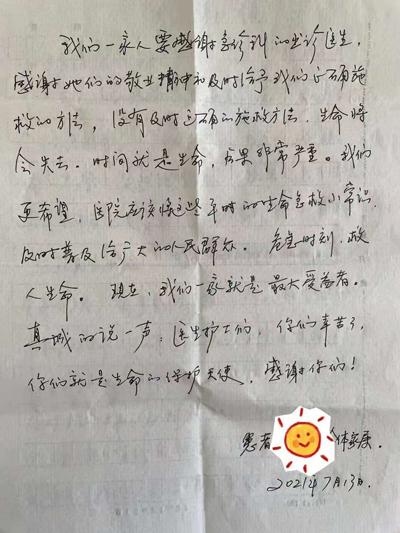 我们一家人要感谢急诊科的出诊医生,
感谢她们的敬业精神和及时给予我们正确施
救的方法,没有及时正确的施救方法,生命将
会失去.时间就是生命,后果非常严重。我们
更希望,医院应该将这些平时的生命急救小常识,
及时普及给广大的人民群众。危急时刻,救
人生命。现在,我们一家就是最大受益者。
真诚的说一声:医生护士们,你们辛苦了,
你们就是生命的保护天使,感谢你们!
患者 家属.
2021年7月13日.